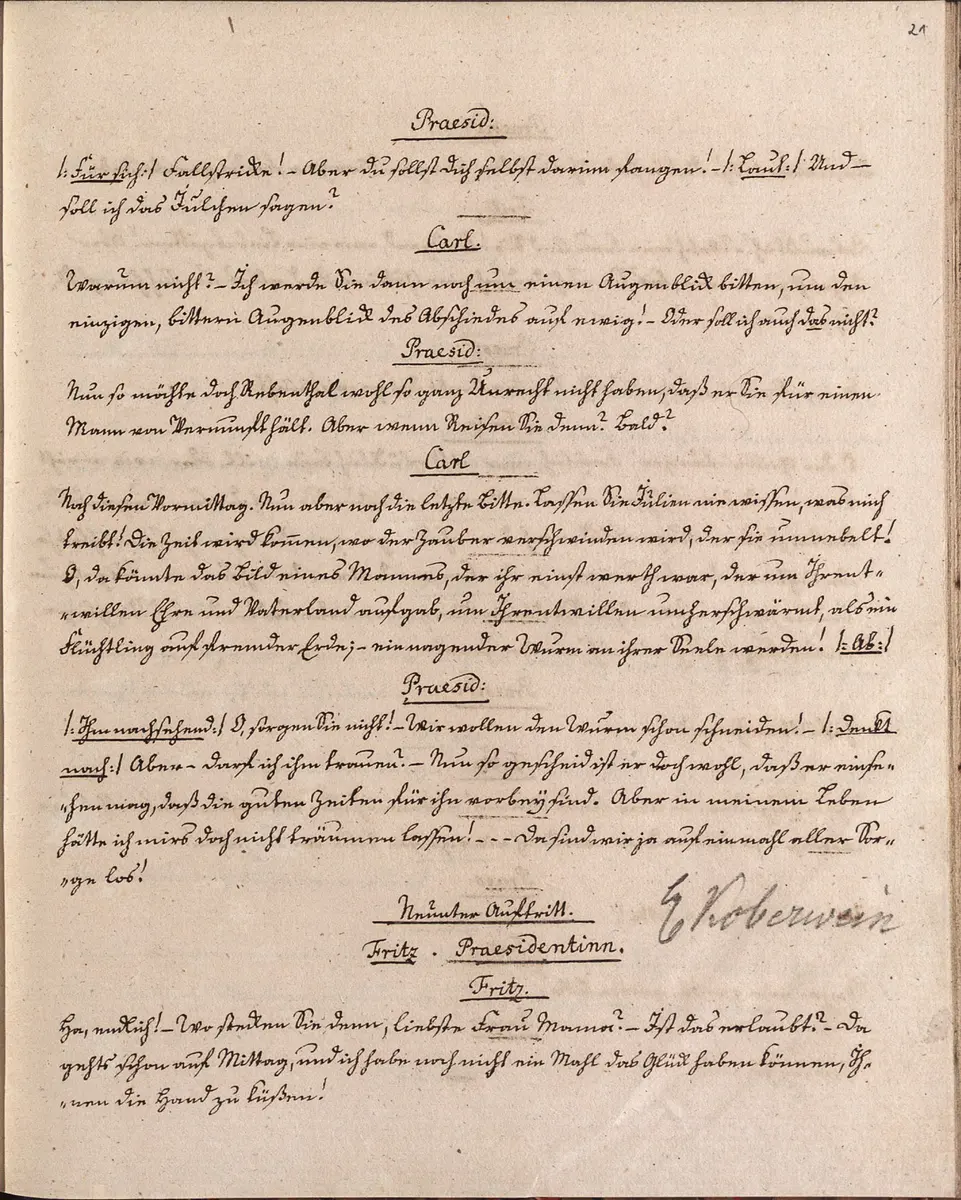 21
Praesid:
/: Für sich :/ Fallstricke! – Aber du sollst dich selbst darinn fangen! – /: Laut :/ Und –
soll ich das Julchen sagen?
Carl.
Warum nicht? – Ich werde Sie dann noch um einen Augenblick bitten, um den
einzigen, bittern Augenblick des Abschiedes auf ewig! – Oder soll ich auch das nicht?
Praesid:
Nun so möchte doch Rebenthal wohl so ganz Unrecht nicht haben, daß er Sie für einen
Mann von Vernunft hält. Aber wenn Reisen Sie denn? Bald?
Carl
Noch diesen Vormittag. Nun aber noch die letzte Bitte. Lassen Sie Julien nie wissen, was mich
treibt! Die Zeit wird kommen, wo der Zauber verschwinden wird, der sie umnebelt!
O, da könnte das Bild eines Mannes, der ihr einst werth war, der um Ihrent-
-willen Ehre und Vaterland aufgab, um Ihrentwillen umherschwärmt, als ein
Flüchtling auf fremder Erde; – ein nagender Wurm an ihrer Seele werden! /: Ab :/
Praesid:
/: Ihm nachsehend :/ O, sorgen Sie nicht! – Wir wollen den Wurm schon schneiden! – /: denkt
nach :/ Aber – darf ich ihm trauen? – Nun so gescheid ist er doch wohl, daß er einse-
-hen mag, daß die guten Zeiten für ihn vorbey sind. Aber in meinem Leben
hätte ich mirs doch nicht träumen lassen! - - - Da sind wir ja auf einmahl aller Sor-
-ge los!
Neunter Auftritt.
E Koberwein
Fritz . Praesidentinn.
Fritz.
Ha, endlich! – Wo stecken Sie denn, liebste Frau Mama? – Ist das erlaubt? – Da
gehts schon auf Mittag, und ich habe noch nicht ein Mahl das Glück haben können, Ih-
-nen die Hand zu küßen!